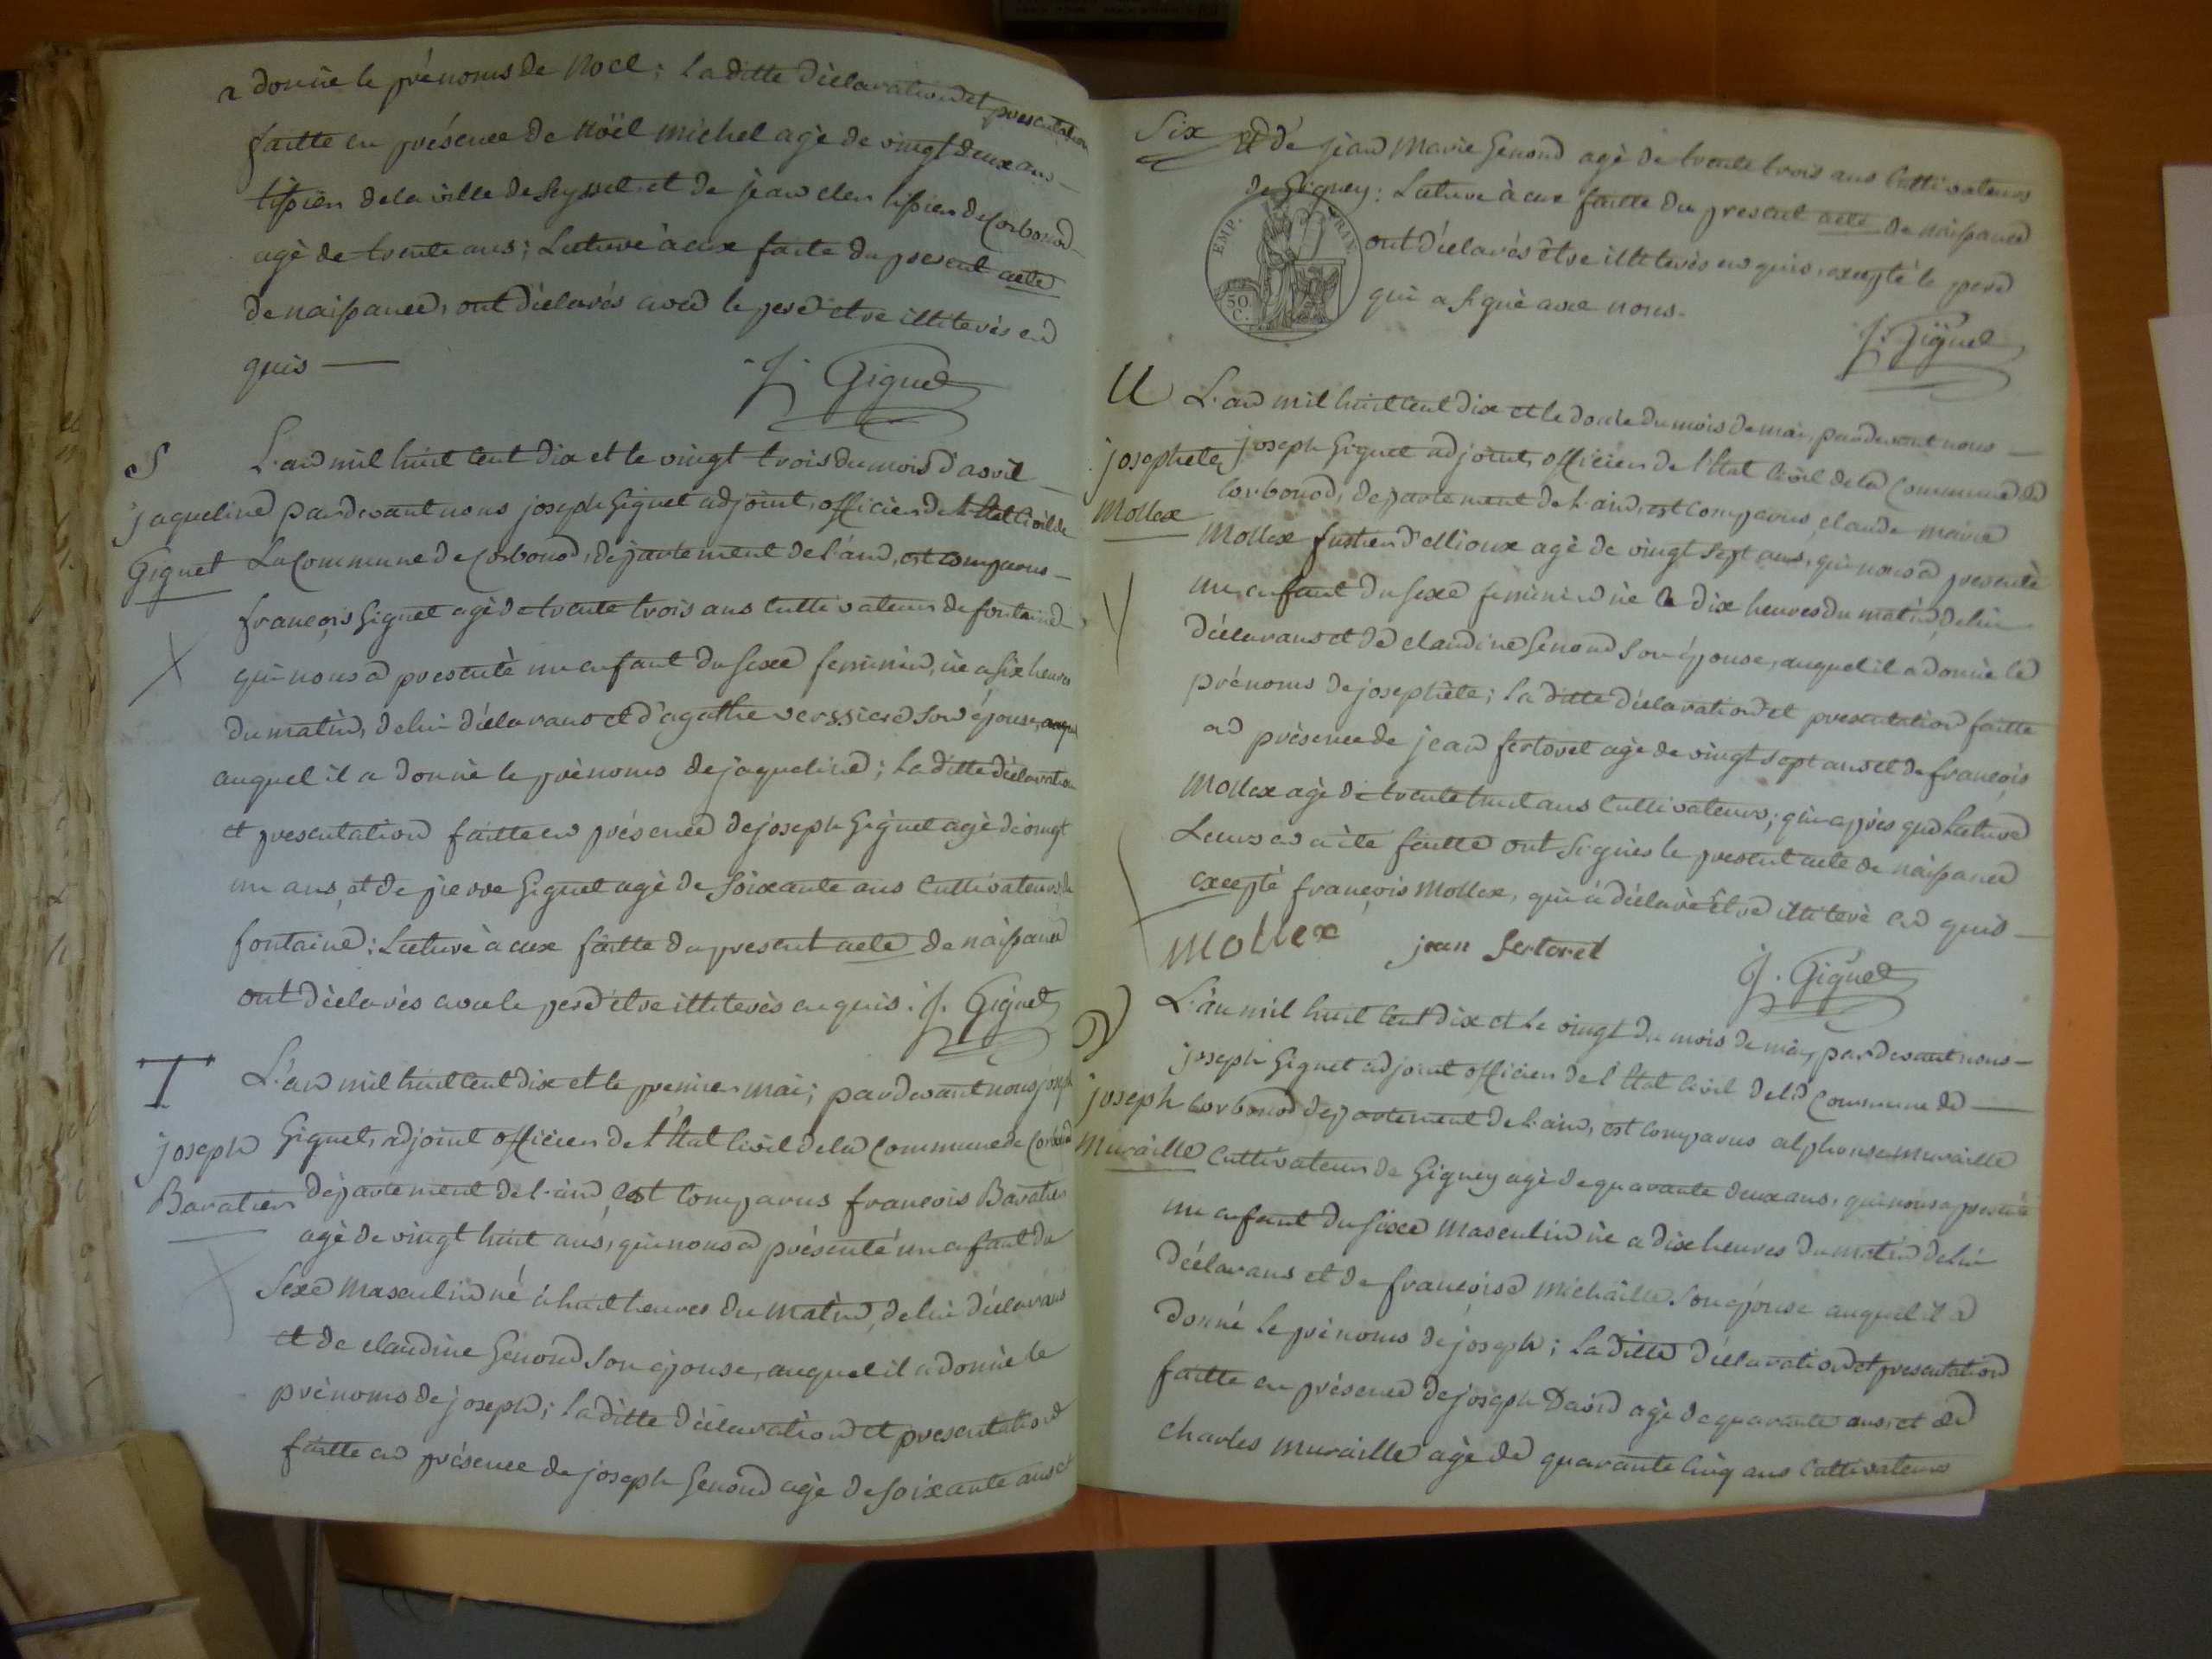 a donnè le prénoms de Noel; la ditte dèclaration et presentation
faitte en présence de Noël michel agè de vingt deux ans
tissier de la ville de seyssel et de jean cler tissier de Corbonod
agè de trente ans; Lecture à eux faite du present acte
de naissance, ont dèclarés avec le pere etre illiterés en
quis
J. Giguet
S
L'an mil huit cent dix et le vingt trois du mois d'avril
jaqueline pardevant nous joseph Giguet adjoint, officier de l'Etat Civil de
Giguet La Commune de Corbonod, département de l'ain, est comparus
françois Giguet agè de trente trois ans cultivateur de fontaine
qui nous a presentè un enfant du sexe feminin, nè a six heures
du matin, de lui dèclarans et d'agathe verssiere son épouse,
auquel il a donnè le prènoms de jaqueline; la ditte dèclaration
et presentation faitte en présence de joseph Giguet agè de vingt
un ans, et de pierre Giguet agè de soixante ans Cultivateurs de
fontaine: Lecture à eux faitte du present acte de naissance
ont dèclarès avec le pere etre illiterès en quis. J. Giguet
T
L'an mil huit cent dix et le premier mai; pardevant nous joseph
joseph Giguet, adjoint officier de l'Etat Civil de la Commune de Corbonod
Baratier département de l'ain, est comparus françois Baratier
agè de vingt huit ans, qui nous a présenté un enfant du
sexe masculin né à huit heures du matin, de lui dèclarans
et de claudine Genond son épouse, auquel il a donnè le
prènoms de joseph; la ditte dèclaration et presentation
faitte en présence de joseph Genond agè de soixante ans et
Six
et de jean Marie Genond agè de trente trois ans Cultivateurs
de Gigney: Lecture à eux faitte du present acte de naissance
ont dèclarès être illiterès en quis, exceptè le pere
qui a signè avec nous.
EMP. FRAN.
50.
C.
J. Giguet
U
L'an mil huit cent dix et le douze du mois de mai, pardevant nous
josephete joseph Giguet adjoint, officier de l'Etat Civil de la Commune de
Corbonod, departement de l'ain, est comparus, claude marie
Mollex
Mollex fustier d'ollioux agè de vingt sept ans, qui nous a presentè
un enfant du sexe feminin nè a dix heures du matin, de lui
dèclarans et de claudine Genond son épouse, auquel il a donnè le
prénoms de josephète; la ditte dèclaration et presentation faitte
en présence de jean fertoret agè de vingt sept ans et de françois
Mollex agè de trente huit ans Cultivateurs; qui après que lecture
Leurs en a été faitte ont signès le present acte de naissance
exceptè françois Mollex, qui à dèclarè être illiterè en quis
Mollex jean fertoret
J. Giguet
V
L'an mil huit cent dix et le vingt du mois de mai, pardevant nous
joseph Giguet adjoint officier de l'Etat Civil de la Commune de
joseph Corbonod departement de l'ain, est comparus alphonse muraille
Muraille Cultivateur de Gigney agè de quarante deux ans, qui nous a presentè
un enfant du sexe masculin nè a dix heures du matin de lui
déclarans et de françoise michaille son épouse auquel il a
donné le prènoms de joseph; la ditte dèclaration et presentation
faitte en présence de joseph David agè de quarante ans, et de
charles muraille agè de quarante cinq ans Cultivateurs